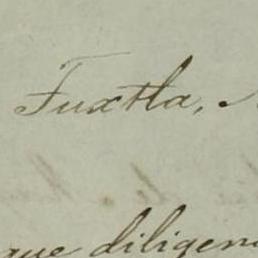 Tuxtla,
que diligen